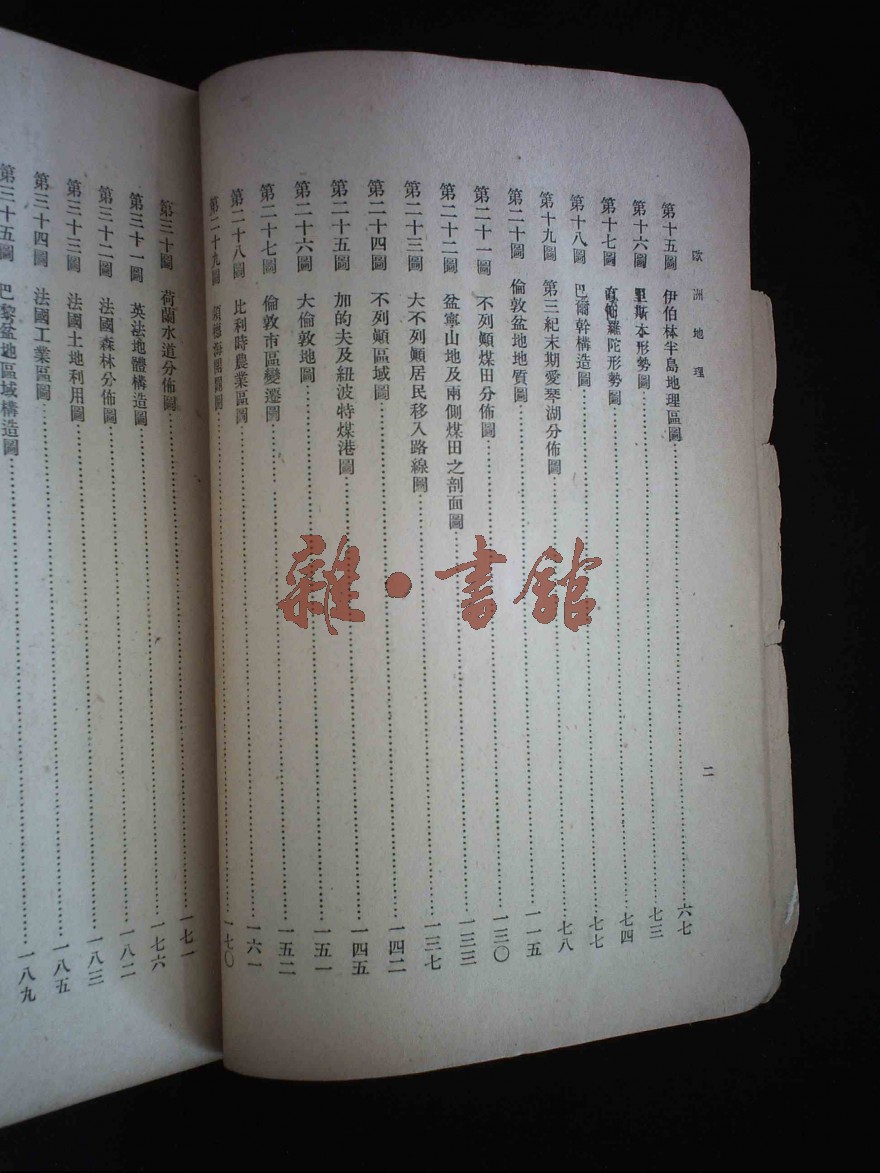 歐洲地理
二
第十五圖 伊伯林半島地理區圖 六七
第十六圖 里斯本形勢圖 七三
第十七圖 直布羅陀形勢圖 七四
第十八圖 巴爾幹構造圖 七七
第十九圖 第三紀末期愛琴湖分佈圖 七八
第二十圖 倫敦盆地地質圖 一一五
第二十一圖 不列顛煤田分佈圖 一三〇
第二十二圖 盆寧山地及兩側煤田之剖面圖 一三三
第二十三圖 大不列顛居民移入路線圖 一三七
第二十四圖 不列顛區域圖 一四二
第二十五圖 加的夫及紐波特煤港圖 一四五
第二十六圖 大倫敦地圖 一五一
第二十七圖 倫敦市區變遷圖 一五二
第二十八圖 比利時農業區圖 一六一
第二十九圖 一七〇
第三十圖 荷蘭水道分佈圖 一七一
第三十一圖 英法地體構造圖 一七六
第三十二圖 法國森林分佈圖 一八二
第三十三圖 法國土地利用圖 一八三
第三十四圖 法國工業區圖 一八五
第三十五圖 巴黎盆地區域構造圖 一八九
雜·書館